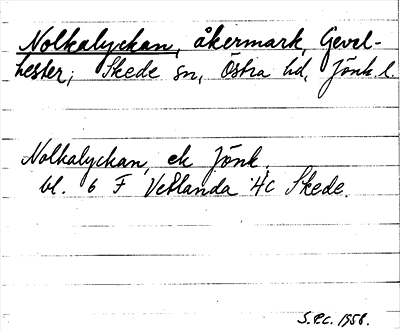 Nolkalyckan, åkermark, Gevel-
hester; Skede sn, Östra hd, Jönk. l.
Nolkalyckan, ek Jönk.
bl. 6 F Vetlanda 4c Skede.
S.E.C. 1958.